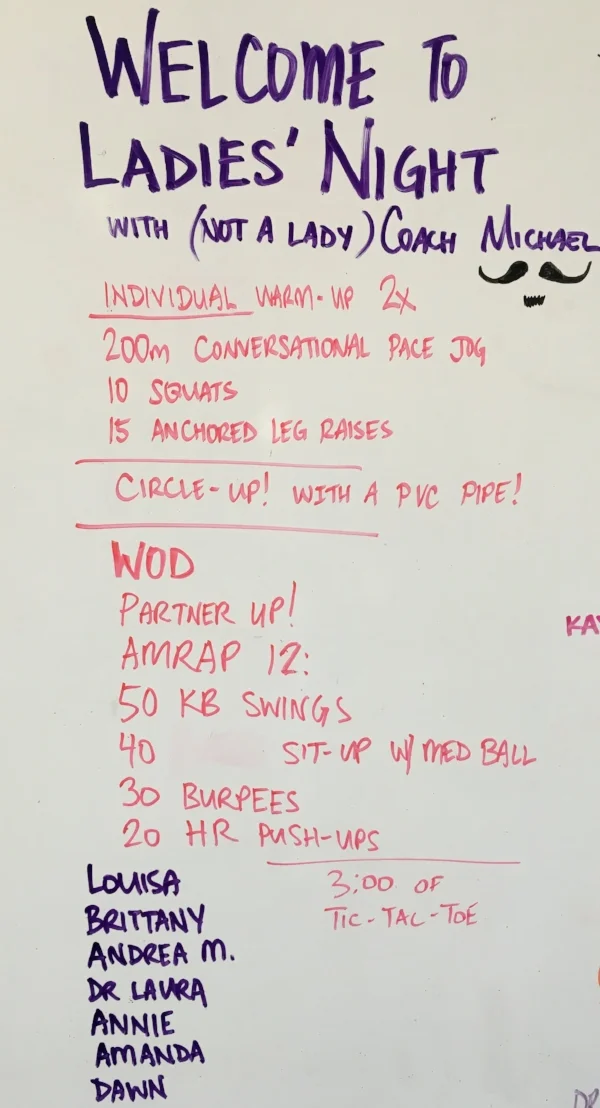 WELCOME TO
LADIES' NIGHT
WITH (NOT A LADY) COACH MICHAEL
INDIVIDUAL WARM-UP 2x
200m CONVERSATIONAL PACE JOG
10 SQUATS
15 ANCHORED LEG RAISES
CIRCLE-UP! WITH A PVC PIPE!
WOD
PARTNER UP!
AMRAP 12:
50 KB SWINGS
40 SIT-UP W/ MED BALL
30 BURPEES
20 HR PUSH-UPS
3:00 OF
TIC-TAC-TOE
LOUISA
BRITTANY
ANDREA M.
DR LAURA
ANNIE
AMANDA
DAWN